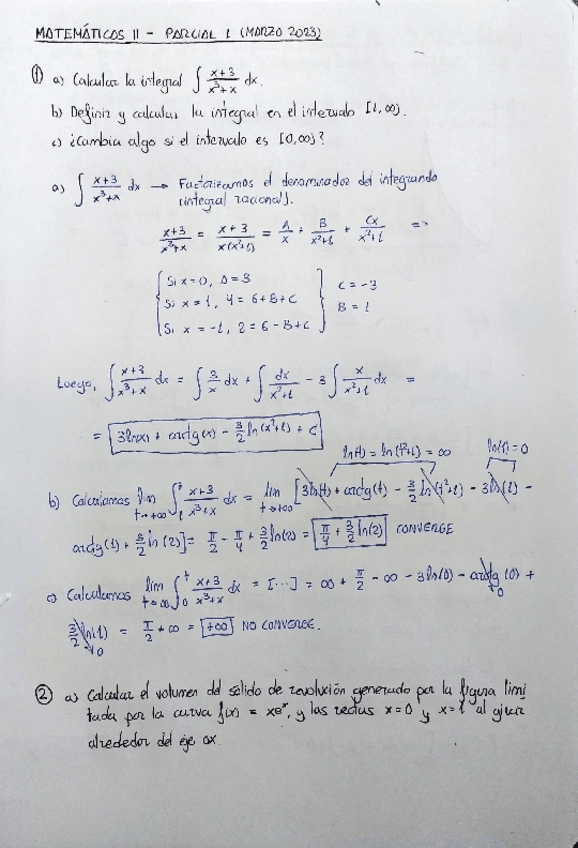 MATEMÁTICAS II - PARCIAL 1 (MARZO 2023)
① a) Calcular la integral ∫ (x+3)/(x³+x) dx.
b) Definir y calcular la integral en el intervalo [1,∞).
c) ¿Cambia algo si el intervalo es [0,∞)?
a) ∫ (x+3)/(x³+x) dx → Factorizamos el denominador del integrando
(integral racional).
(x+3)/(x³+x) = (x+3)/(x(x²+1)) = A/x + B/(x²+1) + Cx/(x²+1) =>
Si x=0, A=3
Si x=1, 4=6+B+C } C=-3
Si x=-1, 2=6-B+C } B=1
Luego, ∫ (x+3)/(x³+x) dx = ∫ 3/x dx + ∫ dx/(x²+1) - 3 ∫ x/(x²+1) dx =
= 3ln|x| + arctg(x) - 3/2 ln(x²+1) + C
ln(t) = ln(t²+1) = ∞ ln(1)=0
b) Calculamos lim t→+∞ ∫₁ᵗ (x+3)/(x³+x) dx = lim t→+∞ [3ln(t) + arctg(t) - 3/2 ln(t²+1) - 3ln(1) -
arctg(1) + 3/2 ln(2)] = π/2 - π/4 + 3/2 ln(2) = π/4 + 3/2 ln(2) CONVERGE
c) Calculamos lim t→∞ ∫₀ᵗ (x+3)/(x³+x) dx = [...] = ∞ + π/2 - ∞ - 3ln(0) - arctg(0) +
0
3/2 ln(1) = π/2 + ∞ = +∞ NO CONVERGE.
0
② a) Calcular el volumen del sólido de revolución generado por la figura limi
tada por la curva f(x) = xeˣ, y las rectas x=0 y x=1 al girar
alrededor del eje OX.